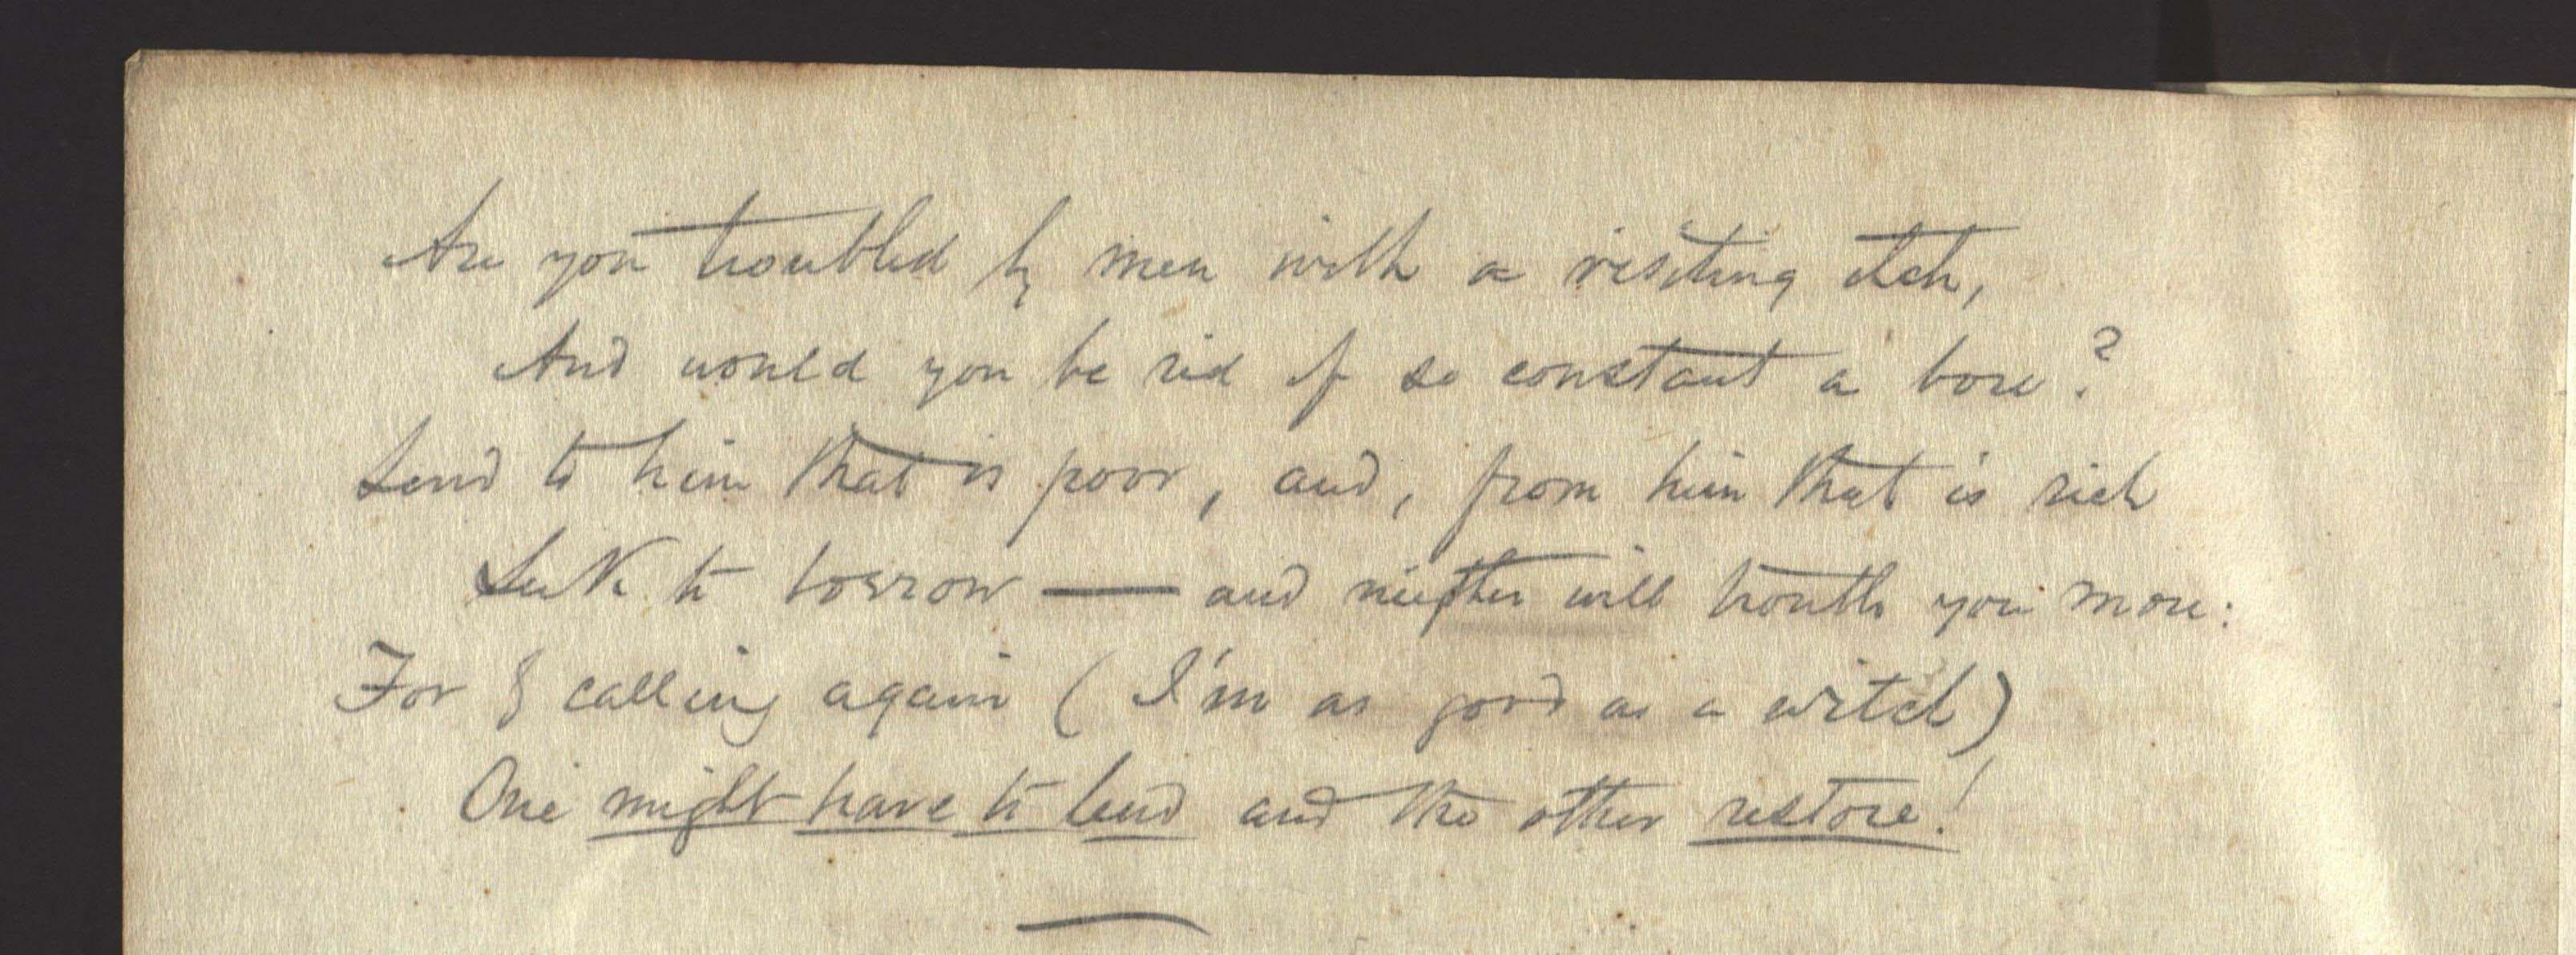 Are you troubled by men with a visiting itch,
And would you be rid of so constant a bore?
Lend to him that is poor, and, from him that is rich
Seek to borrow — and neither will trouble you more:
For calling again (I'm as good as a witch)
One might have to lend and the other restore!